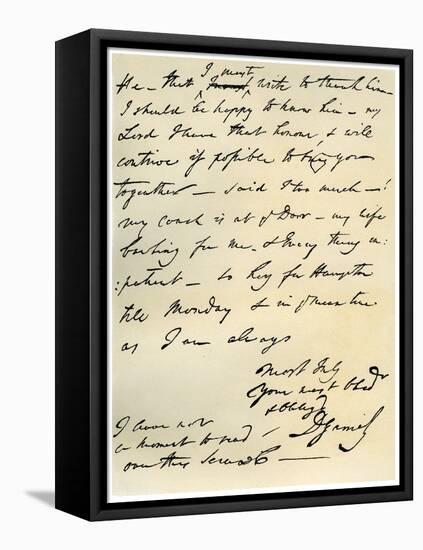 I must
He – that write to thank him –
I should be happy to know him – my
Lord I have that honour, & will
contrive if possible to bring you
together – said I too much – !
my coach is at y Door – my wife
bawling for me, & Every thing im:
:patient – so hey for Hampton
till Monday & in y mean time
as I am always
most truly
Your most Obed
& Obligd
D Garrick
I have not
a moment to read
over this Scrawl –